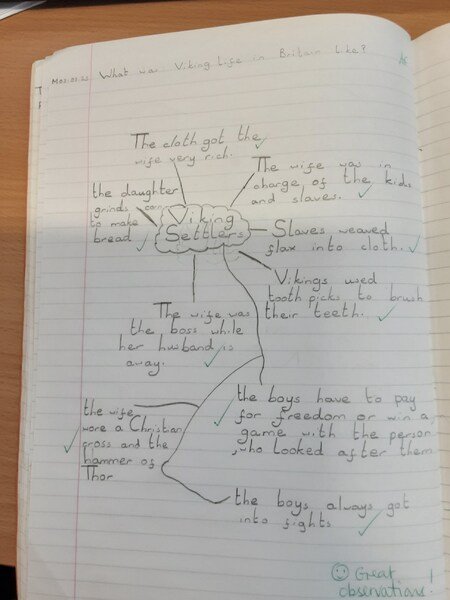 Mo21.03.22 What was Viking Life in Britain like?
The cloth got the
wife very rich.
The wife was in
charge of the kids
and slaves.
the daughter
grinds corn
to make
bread
Viking
Settlers
Slaves weaved
flax into cloth.
Vikings used
tooth picks to brush
their teeth.
The wife was
the boss while
her husband is
away.
the boys have to pay
for freedom or win a
game with the person
who looked after them
the wife
wore a Christian
cross and the
hammer of
Thor
the boys always got
into fights
Great
observations!